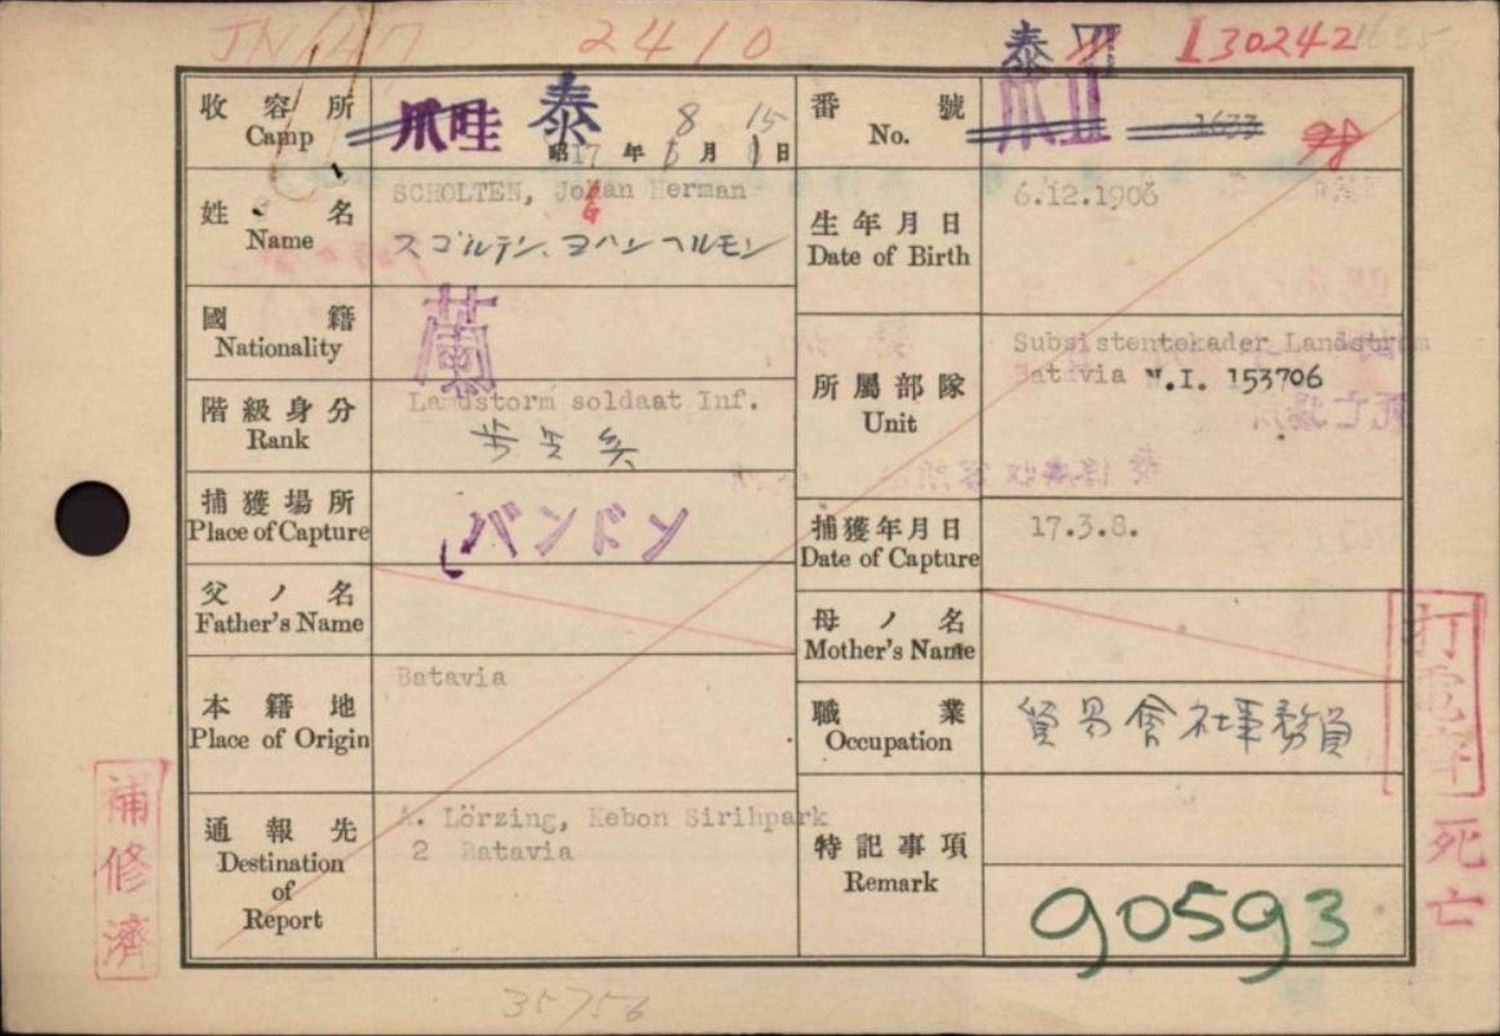 2410
泰 Ⅳ
I 30242
1635
收容所
Camp
爪哇 泰
8 15
昭17年 月 日
番號
No.
爪Ⅱ 1633
98
姓名
Name
SCHOLTEN, Johan Herman
スゴルテン、ヨハン ヘルモン
生年月日
Date of Birth
6.12.1906
國籍
Nationality
蘭
所屬部隊
Unit
Subsistentekader Landstrom
Batavia N.I. 153706
階級身分
Rank
Landstorm soldaat Inf.
捕獲場所
Place of Capture
バンドン
捕獲年月日
Date of Capture
17.3.8.
父ノ名
Father's Name
母ノ名
Mother's Name
本籍地
Place of Origin
Batavia
職業
Occupation
貿易會社事務員
通報先
Destination
of
Report
A. Lörzing, Kebon Sirihpark
2 Batavia
特記事項
Remark
90593
補修濟
打電濟
死亡
35756